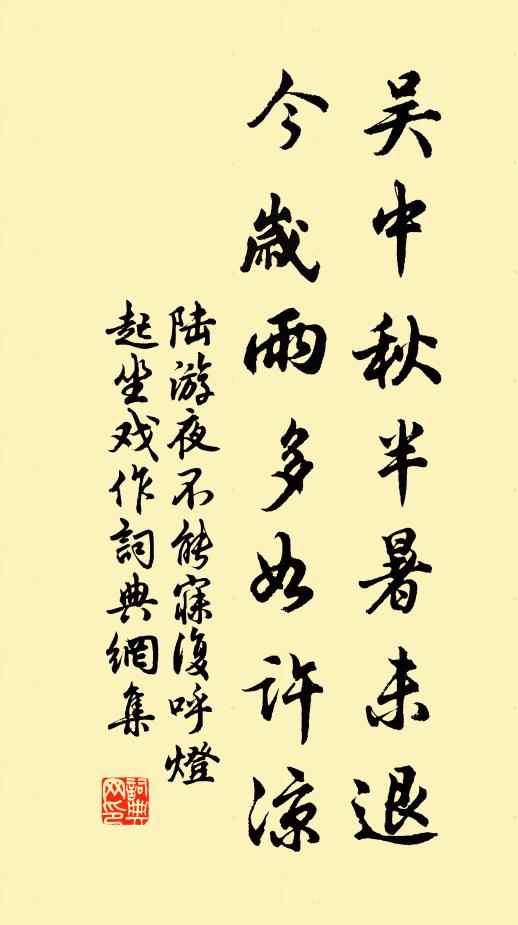 吴中秋半暑未退
今歲雨多如許涼
陆游夜不能寐復呼燈
起坐戏作詞典網集
詞典
网印